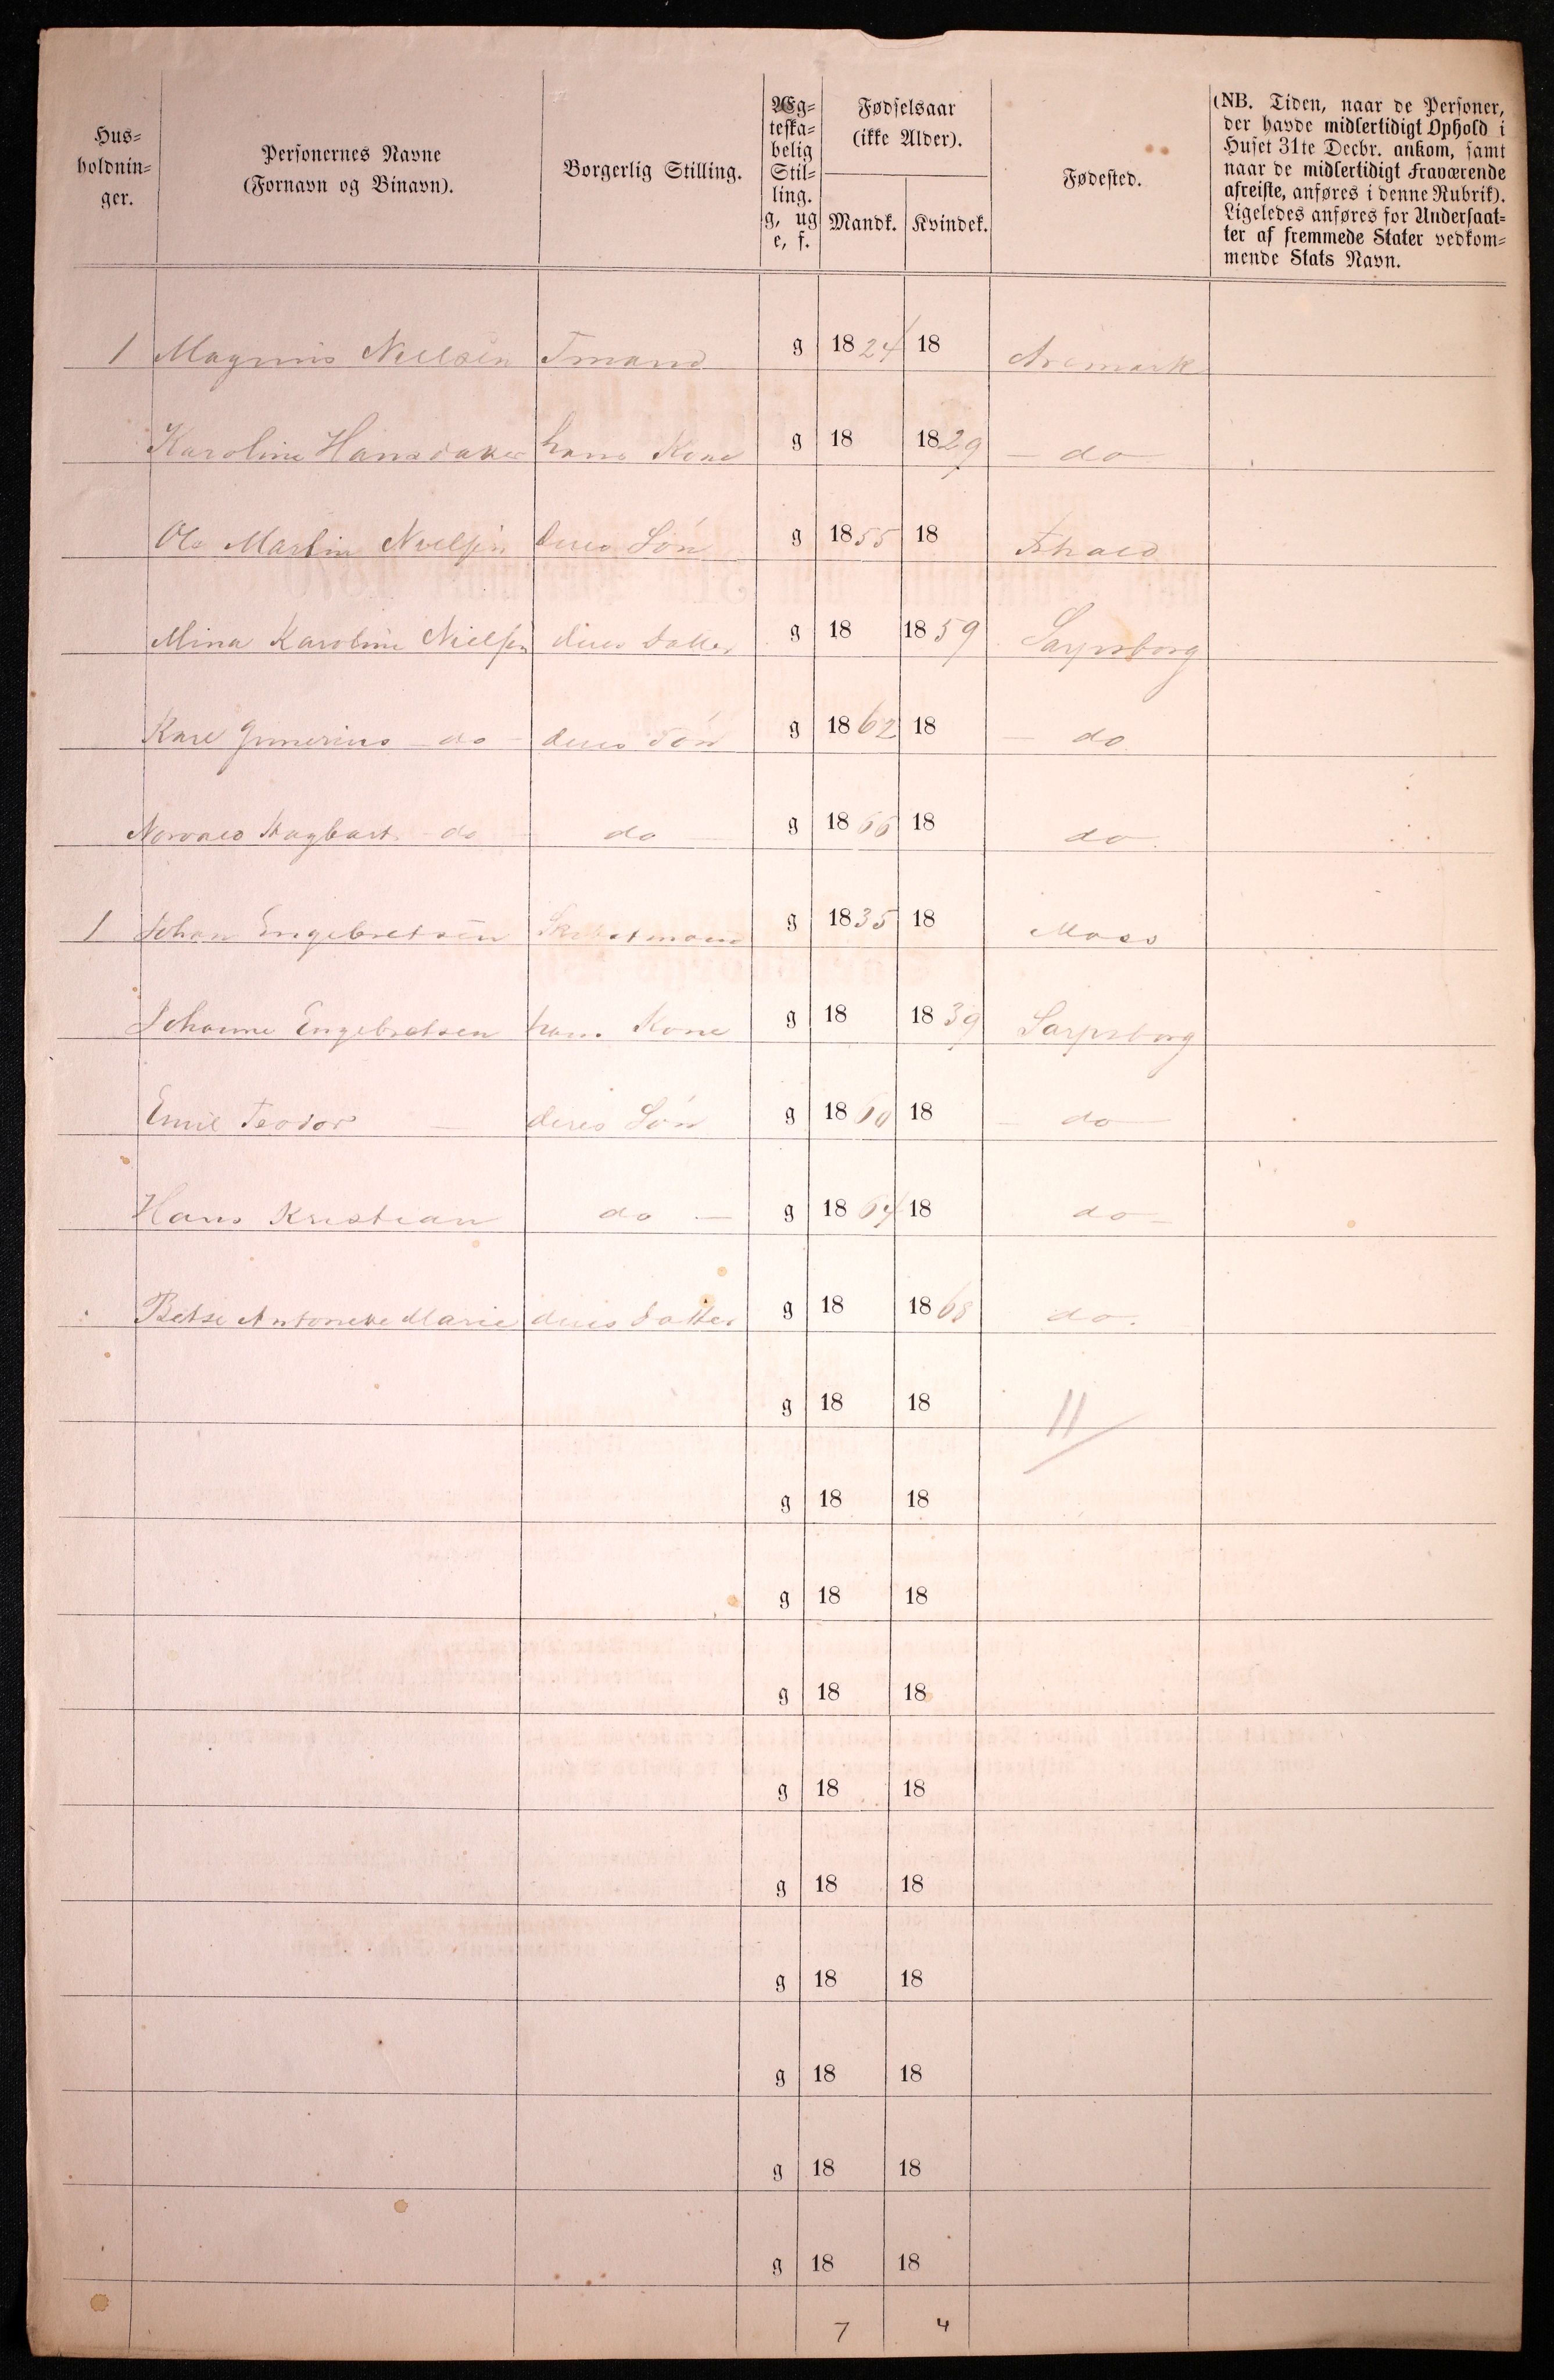 Hus=
holdnin=
ger.
Personernes Navne
(Fornavn og Binavn).
Borgerlig Stilling.
Æg=
teska=
belig
Stil=
ling.
g, ug
e, f.
Fødselsaar
(ikke Alder).
Mandk. Kvindek.
Fødested.
(NB. Tiden, naar de Personer,
der havde midlertidigt Ophold i
Huset 31te Decbr. ankom, samt
naar de midlertidigt Fraværende
afreiste, anføres i denne Rubrik).
Ligeledes anføres for Undersaat=
ter af fremmede Stater vedkom=
mende Stats Navn.
1 Magnus Nielsen Tmand g 1824 18 Aremark
Karoline Hansdatter hans Kone g 18 1829 — do —
Ole Martin Nielsen deres Søn g 1855 18
Mina Karoline Nielsen deres datter g 18 1859 Sarpsborg
Karl Gunerius - do - deres Søn g 1862 18 — do
Norvald Hagbart - do - do — g 1866 18 do.
1 Johan Engebretsen g 1835 18 Moss
Johanne Engebretsen hans Kone g 18 1839 Sarpsborg
Emil Teodor — deres Søn g 1860 18 — do —
Hans Kristian do — g 1864 18 do —
Betse Marie deres datter g 18 1868 do.
g 18 18 11
g 18 18
g 18 18
g 18 18
g 18 18
g 18 18
g 18 18
g 18 18
g 18 18
g 18 18
7 4